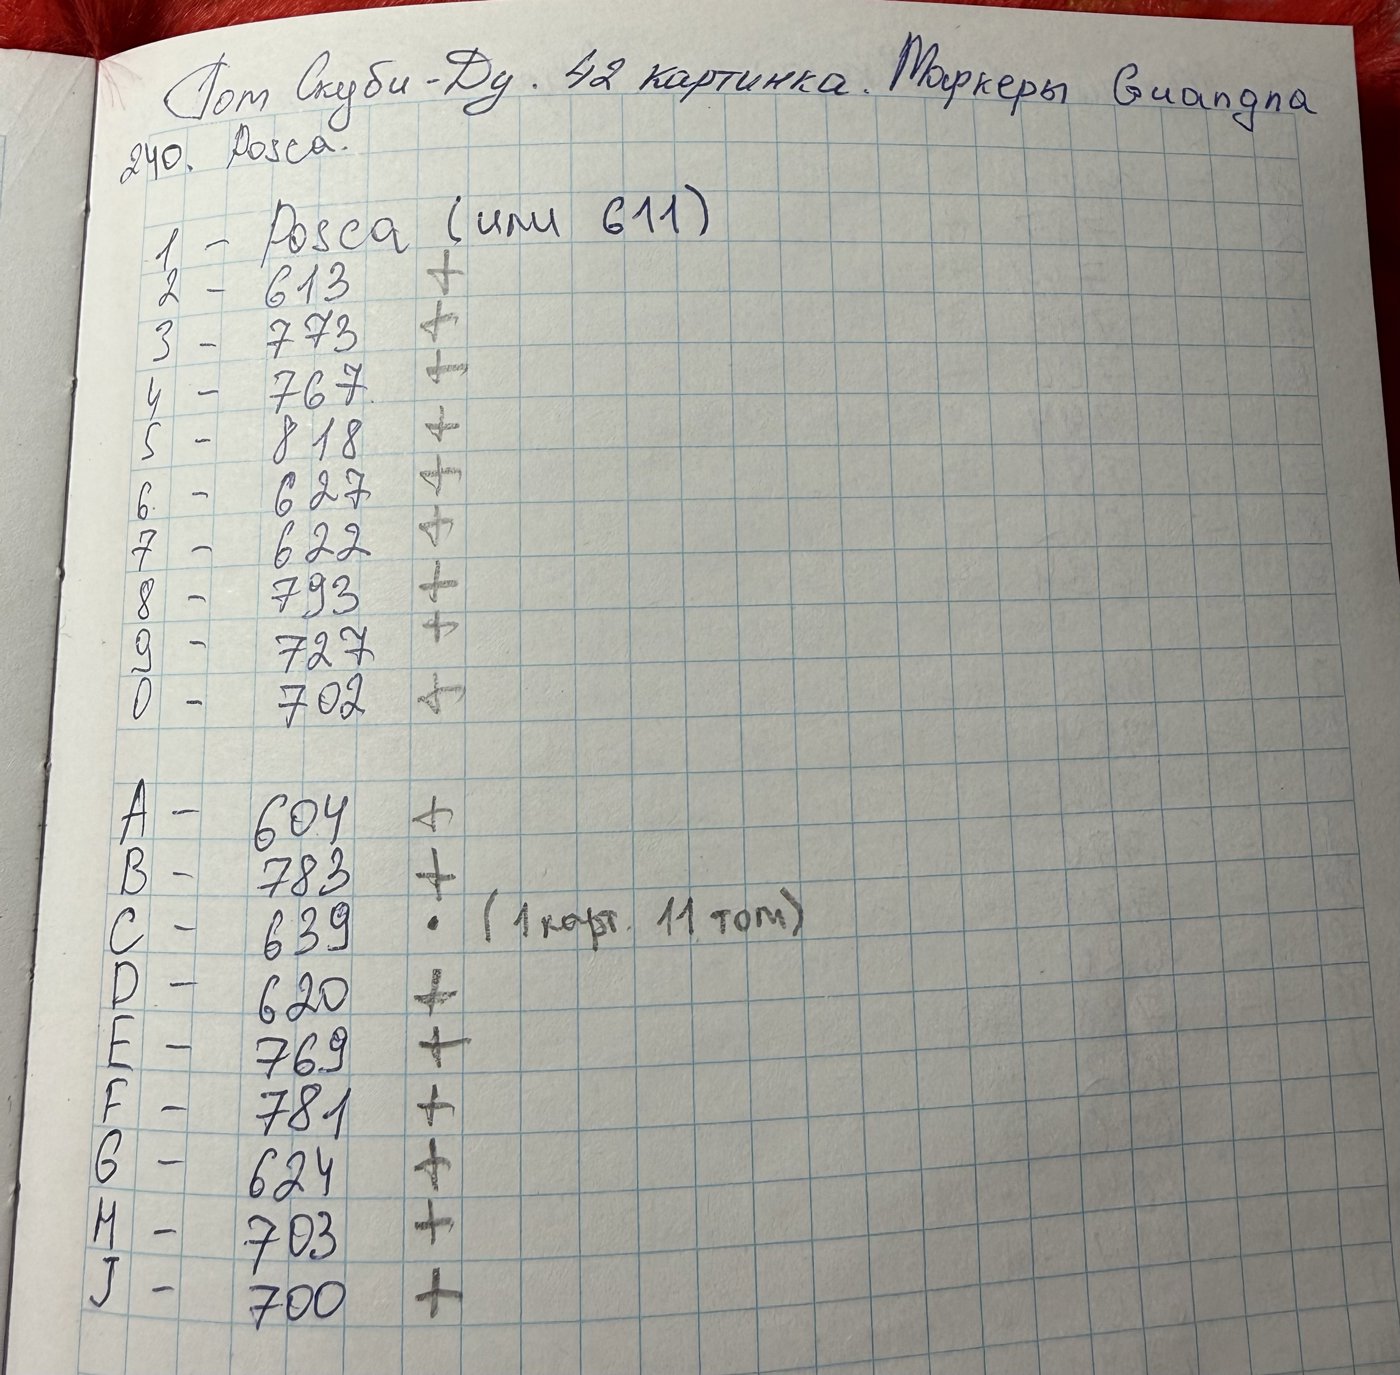 Том Скуби-Ду. 42 картинка. Маркеры Guangna
240. Posca.
1 - Posca (или 611)
2 - 613 +
3 - 773 +
4 - 767 +
5 - 818 +
6 - 627 +
7 - 622 +
8 - 793 +
9 - 727 +
0 - 702 +
A - 604 +
B - 783 +
C - 639 • (1 карт. 11 том)
D - 620 +
E - 769 +
F - 781 +
G - 624 +
H - 703 +
J - 700 +